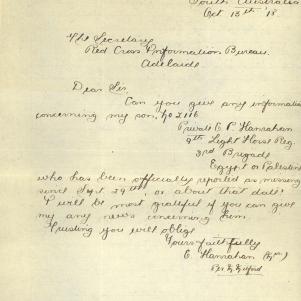 South Australia
Oct 13th '18
The Secretary
Red Cross Information Bureau
Adelaide
Dear Sir,
Can you give any informatio
concerning my son, No 2116
Private C. P. Hanrahan
9th Light Horse Reg.
3rd Brigade
Egypt or Palestine
who has been officially reported as missing
since Sept. 29th, or about that date?
I will be most grateful if you can give
my any news concerning him.
Trusting you will oblige
Yours faithfully
E. Hanrahan